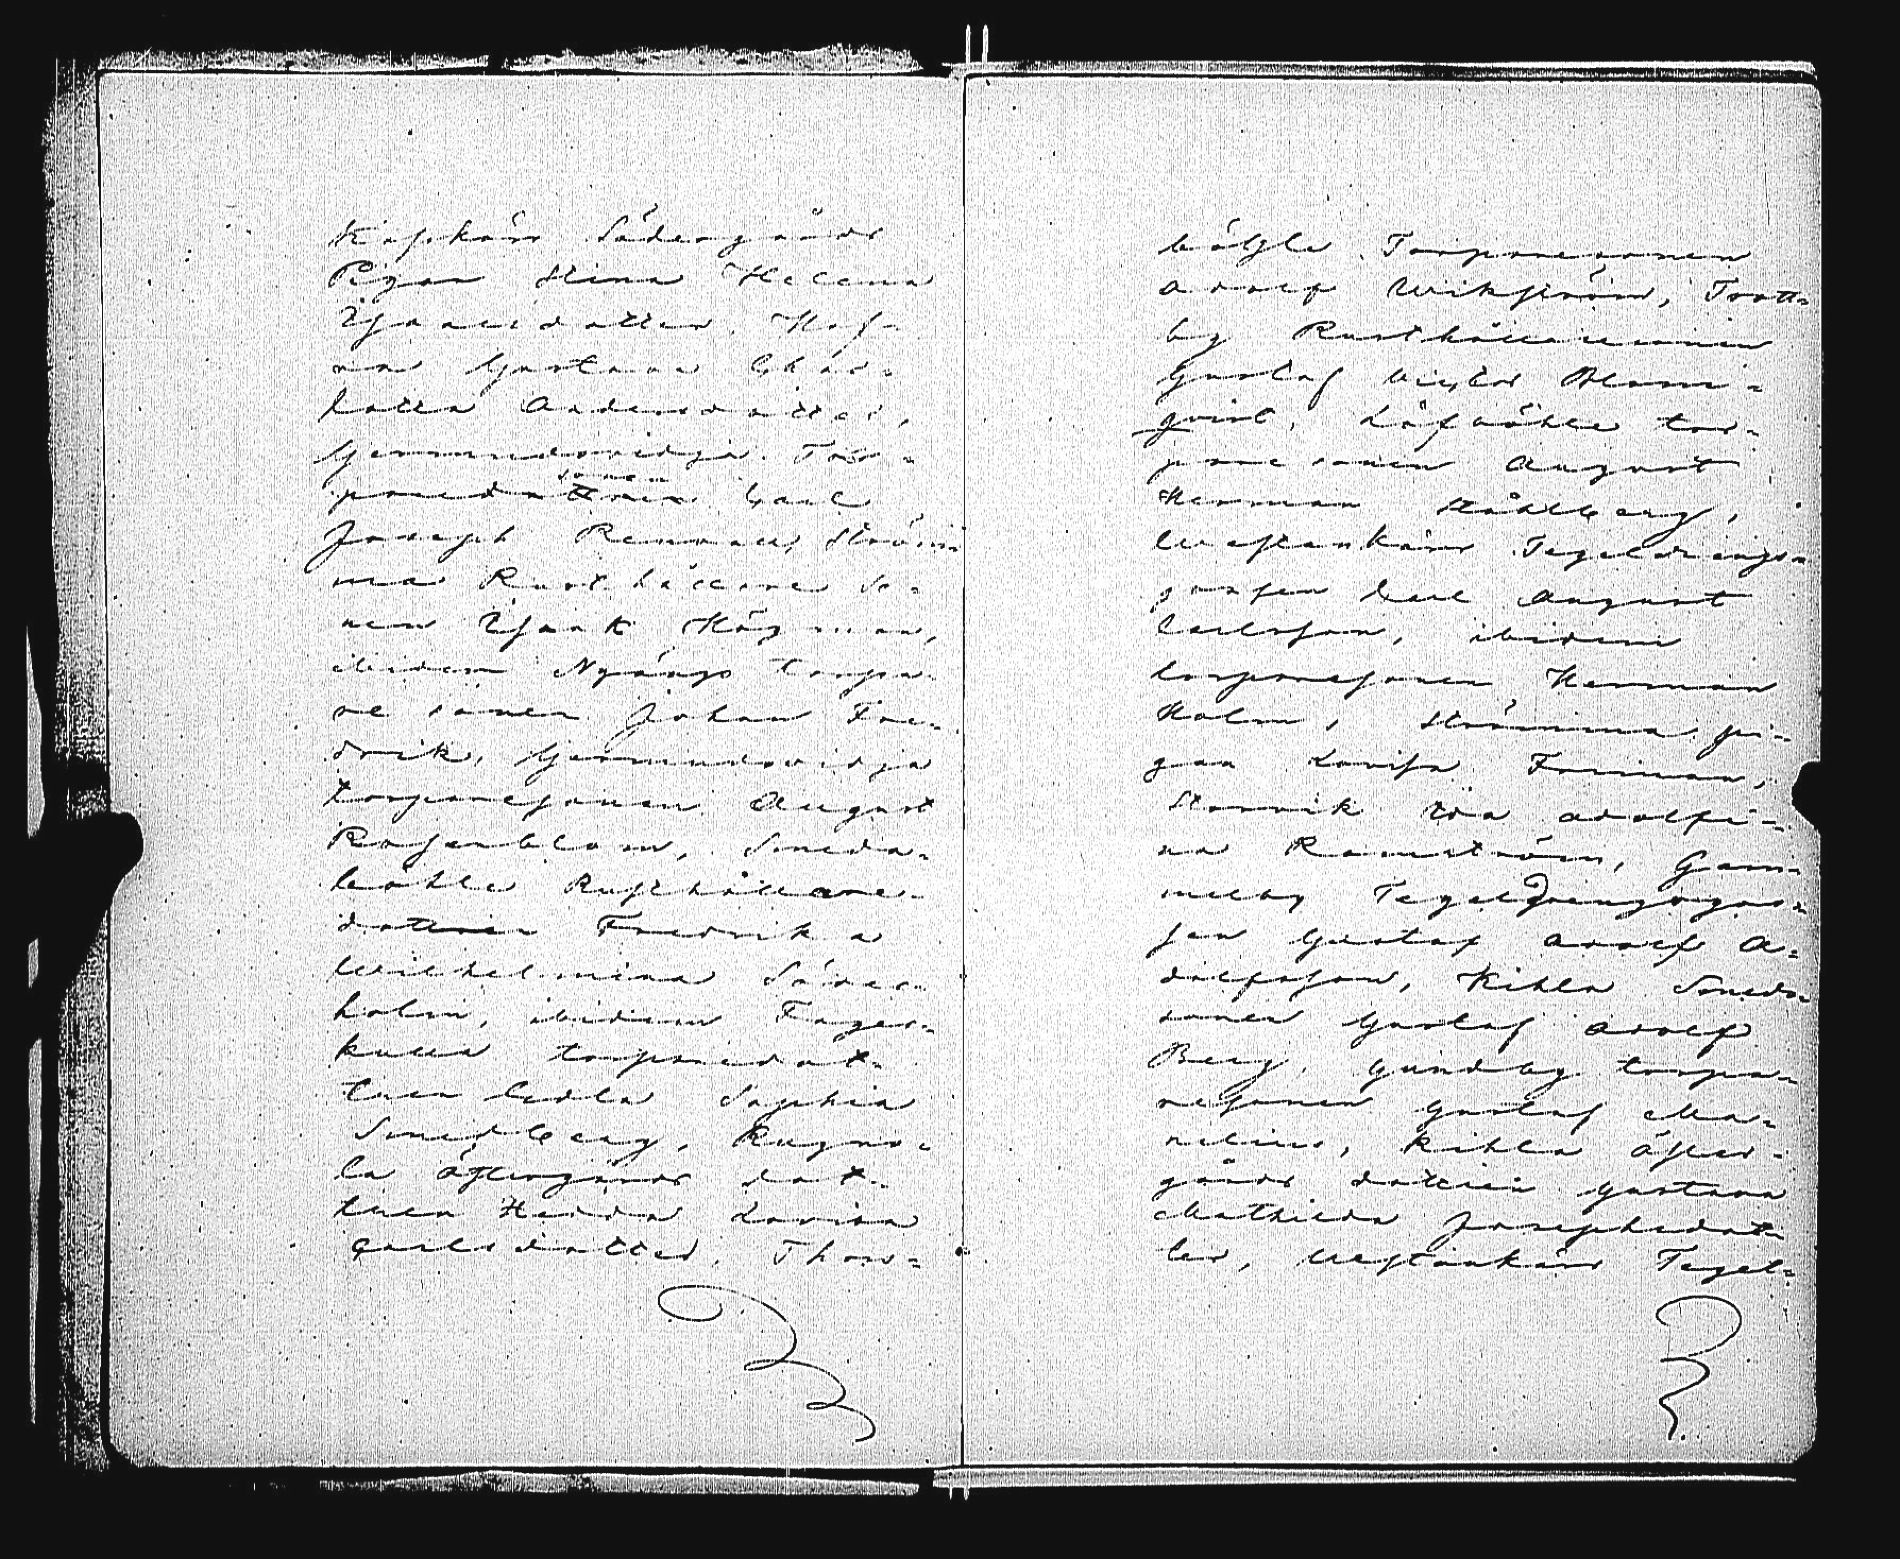 Kafskärs Södergårds
Pigan Stina Helena
Isaacsdotter, Haf-
na Gustava Char-
lotta Andersdotter,
Gemmundsvidja Tor-
sonen
paredottren Carl
Joseph Renvall, Ström-
ma Rusthållare so-
nen Isaak Högman,
ibidem Nyängs torpa-
re sonen Johan Fre-
drik, Gemmundsvidja
torparesonen August
Rosenblom, Smeda-
böhle Rusthållare-
dottren Fredrika
Wilhelmina Söder-
holm, ibidem Fager-
kulla torparedot-
tren Edla Sophia
Smedberg, Rugno-
la Östergårds dot-
tren Hedda Lovisa
Carlsdotter, Thors-
bölle Torparesonen
Adolf Wikström, Tratt-
by Rusthållaresonen
Gustaf Victor Blom-
qvist, Löfböhle tor-
paresonen August
Herman Ståhlberg,
Westankärr Tegeldrängs-
gossen Karl August
Carlsson, ibidem
torparesonen Herman
Holm, Strömma pi-
gan Lovisa Friman,
Storvik Eva Adolfi-
na Ramström, Gam-
melby Tegeldrengsgos-
sen Gustaf Adolf A-
dolfsson, Kihla Smeds-
sonen Gustaf Adolf
Berg, Gundby torpa-
resonen Gustaf Ma-
nelius, Kihla Öster-
gårds dottren Gustava
Mathilda Josephsdot-
ter, Westankärr Tegel-